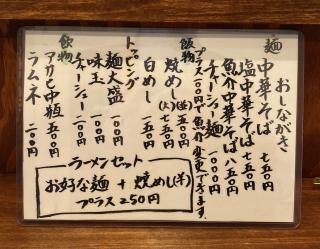 おしながき
麺
中華そば 七五〇円
塩中華そば 七五〇円
魚介中華そば 八五〇円
チャーシュー麺 一〇〇〇円
プラス一〇〇円で魚介変更できます。
飯物
焼めし(並) 五五〇円
(大) 七五〇円
白めし 一五〇円
トッピング
麺大盛 一〇〇円
味玉 一〇〇円
チャーシュー 二〇〇円
飲物
アサヒ中瓶 五〇〇円
ラムネ 二〇〇円
ラーメンセット
お好な麺 + 焼めし(半)
プラス250円